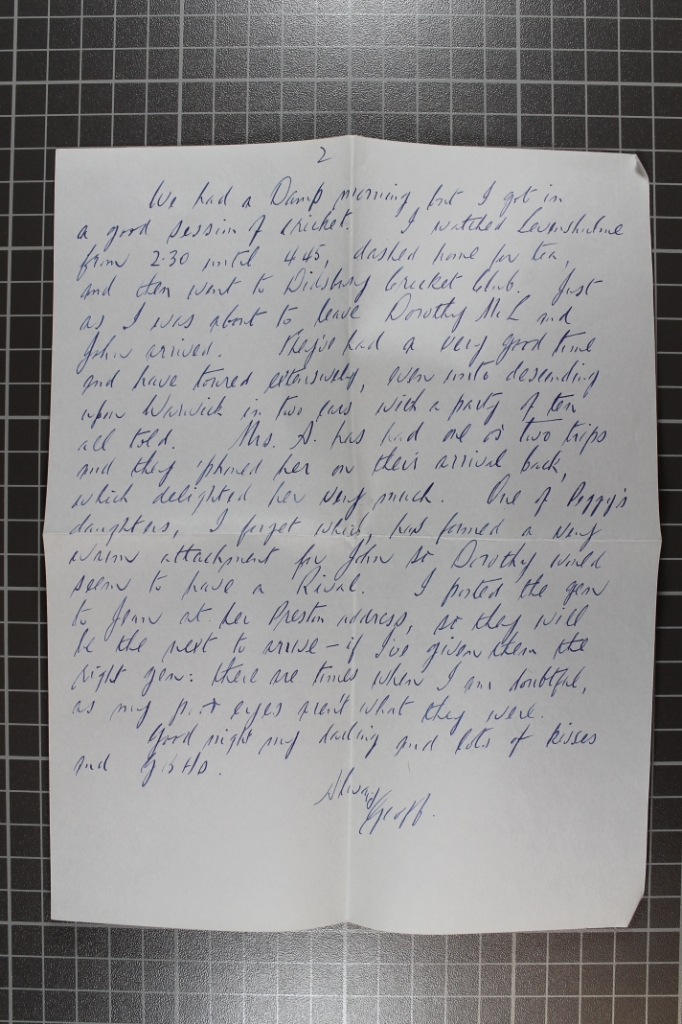 2
We had a Damp morning but I got in
a good session of cricket. I watched Levenshulme
from 2.30 until 4.45, dashed home for tea,
and then went to Didsbury Cricket Club. Just
as I was about to leave Dorothy Mc L and
John arrived. They've had a very good time
and have toured extensively, even unto descending
upon Warwick in two cars with a party of ten
all told. Mrs. A. has had one or two trips
and they 'phoned her on their arrival back,
which delighted her very much. One of Peggy's
daughters, I forget which, has formed a very
warm attachment for John so Dorothy would
seem to have a Rival. I posted the gen
to Jean at her Preston address, so they will
be the next to arrive – if I've given them the
right gen: there are times when I am doubtful,
as my eyes aren't what they were.
Good night my darling and lots of kisses
and
Always
Geoff.